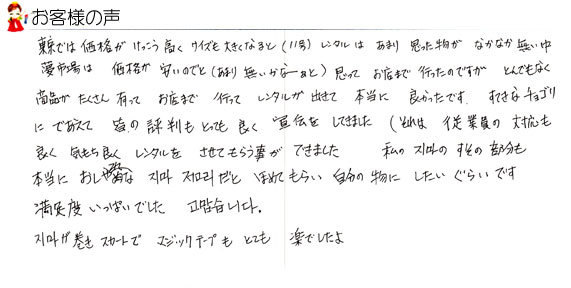 お客様の声
東京では価格がけっこう高くサイズも大きくなると(11号)レンタルはあまり思った物がなかなか無い中
夢市場は 価格が安いのでと(あまり無いかな〜ぁと)思ってお店まで行ったのですが とんでもなく
商品がたくさん有ってお店まで行ってレンタルが出きて本当に良かったです。すてきなチョゴリ
にであえて皆の評判もとっても良く宣伝をしてきました(それは従業員の対応も
良く気もち良くレンタルをさせてもらう事ができました 私のチマのすその部分も
本当におしゃれな 치마 저고리だとほめてもらい自分の物にしたいぐらいです
満足度いっぱいでした 고맙습니다.
치마が巻きスカートでマジックテープもとても楽でしたよ